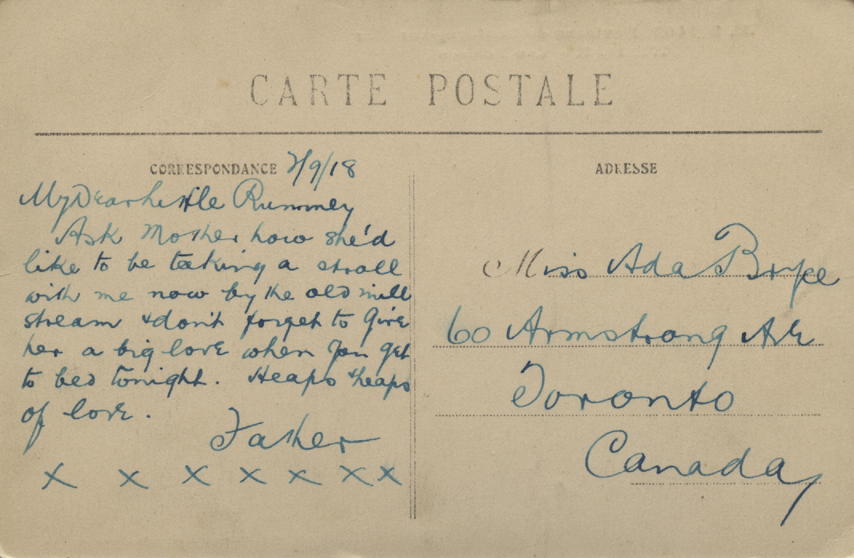 CARTE POSTALE
CORRESPONDANCE 2/9/18
ADRESSE
My Dear Little Rummey
Ask Mother how she'd
like to be taking a stroll
with me now by the old mill
stream & don't forget to give
her a big love when you get
to bed tonight. Heaps & heaps
of love.
Father
x x x x x x x
Miss Ada Bryce
60 Armstrong Ave
Toronto
Canada